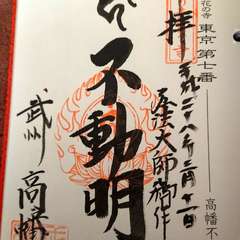 花の寺 東京 第七番
高幡不
拝
平成二十八年二月十一日
蓬大師御作
不動明
武州 高幡